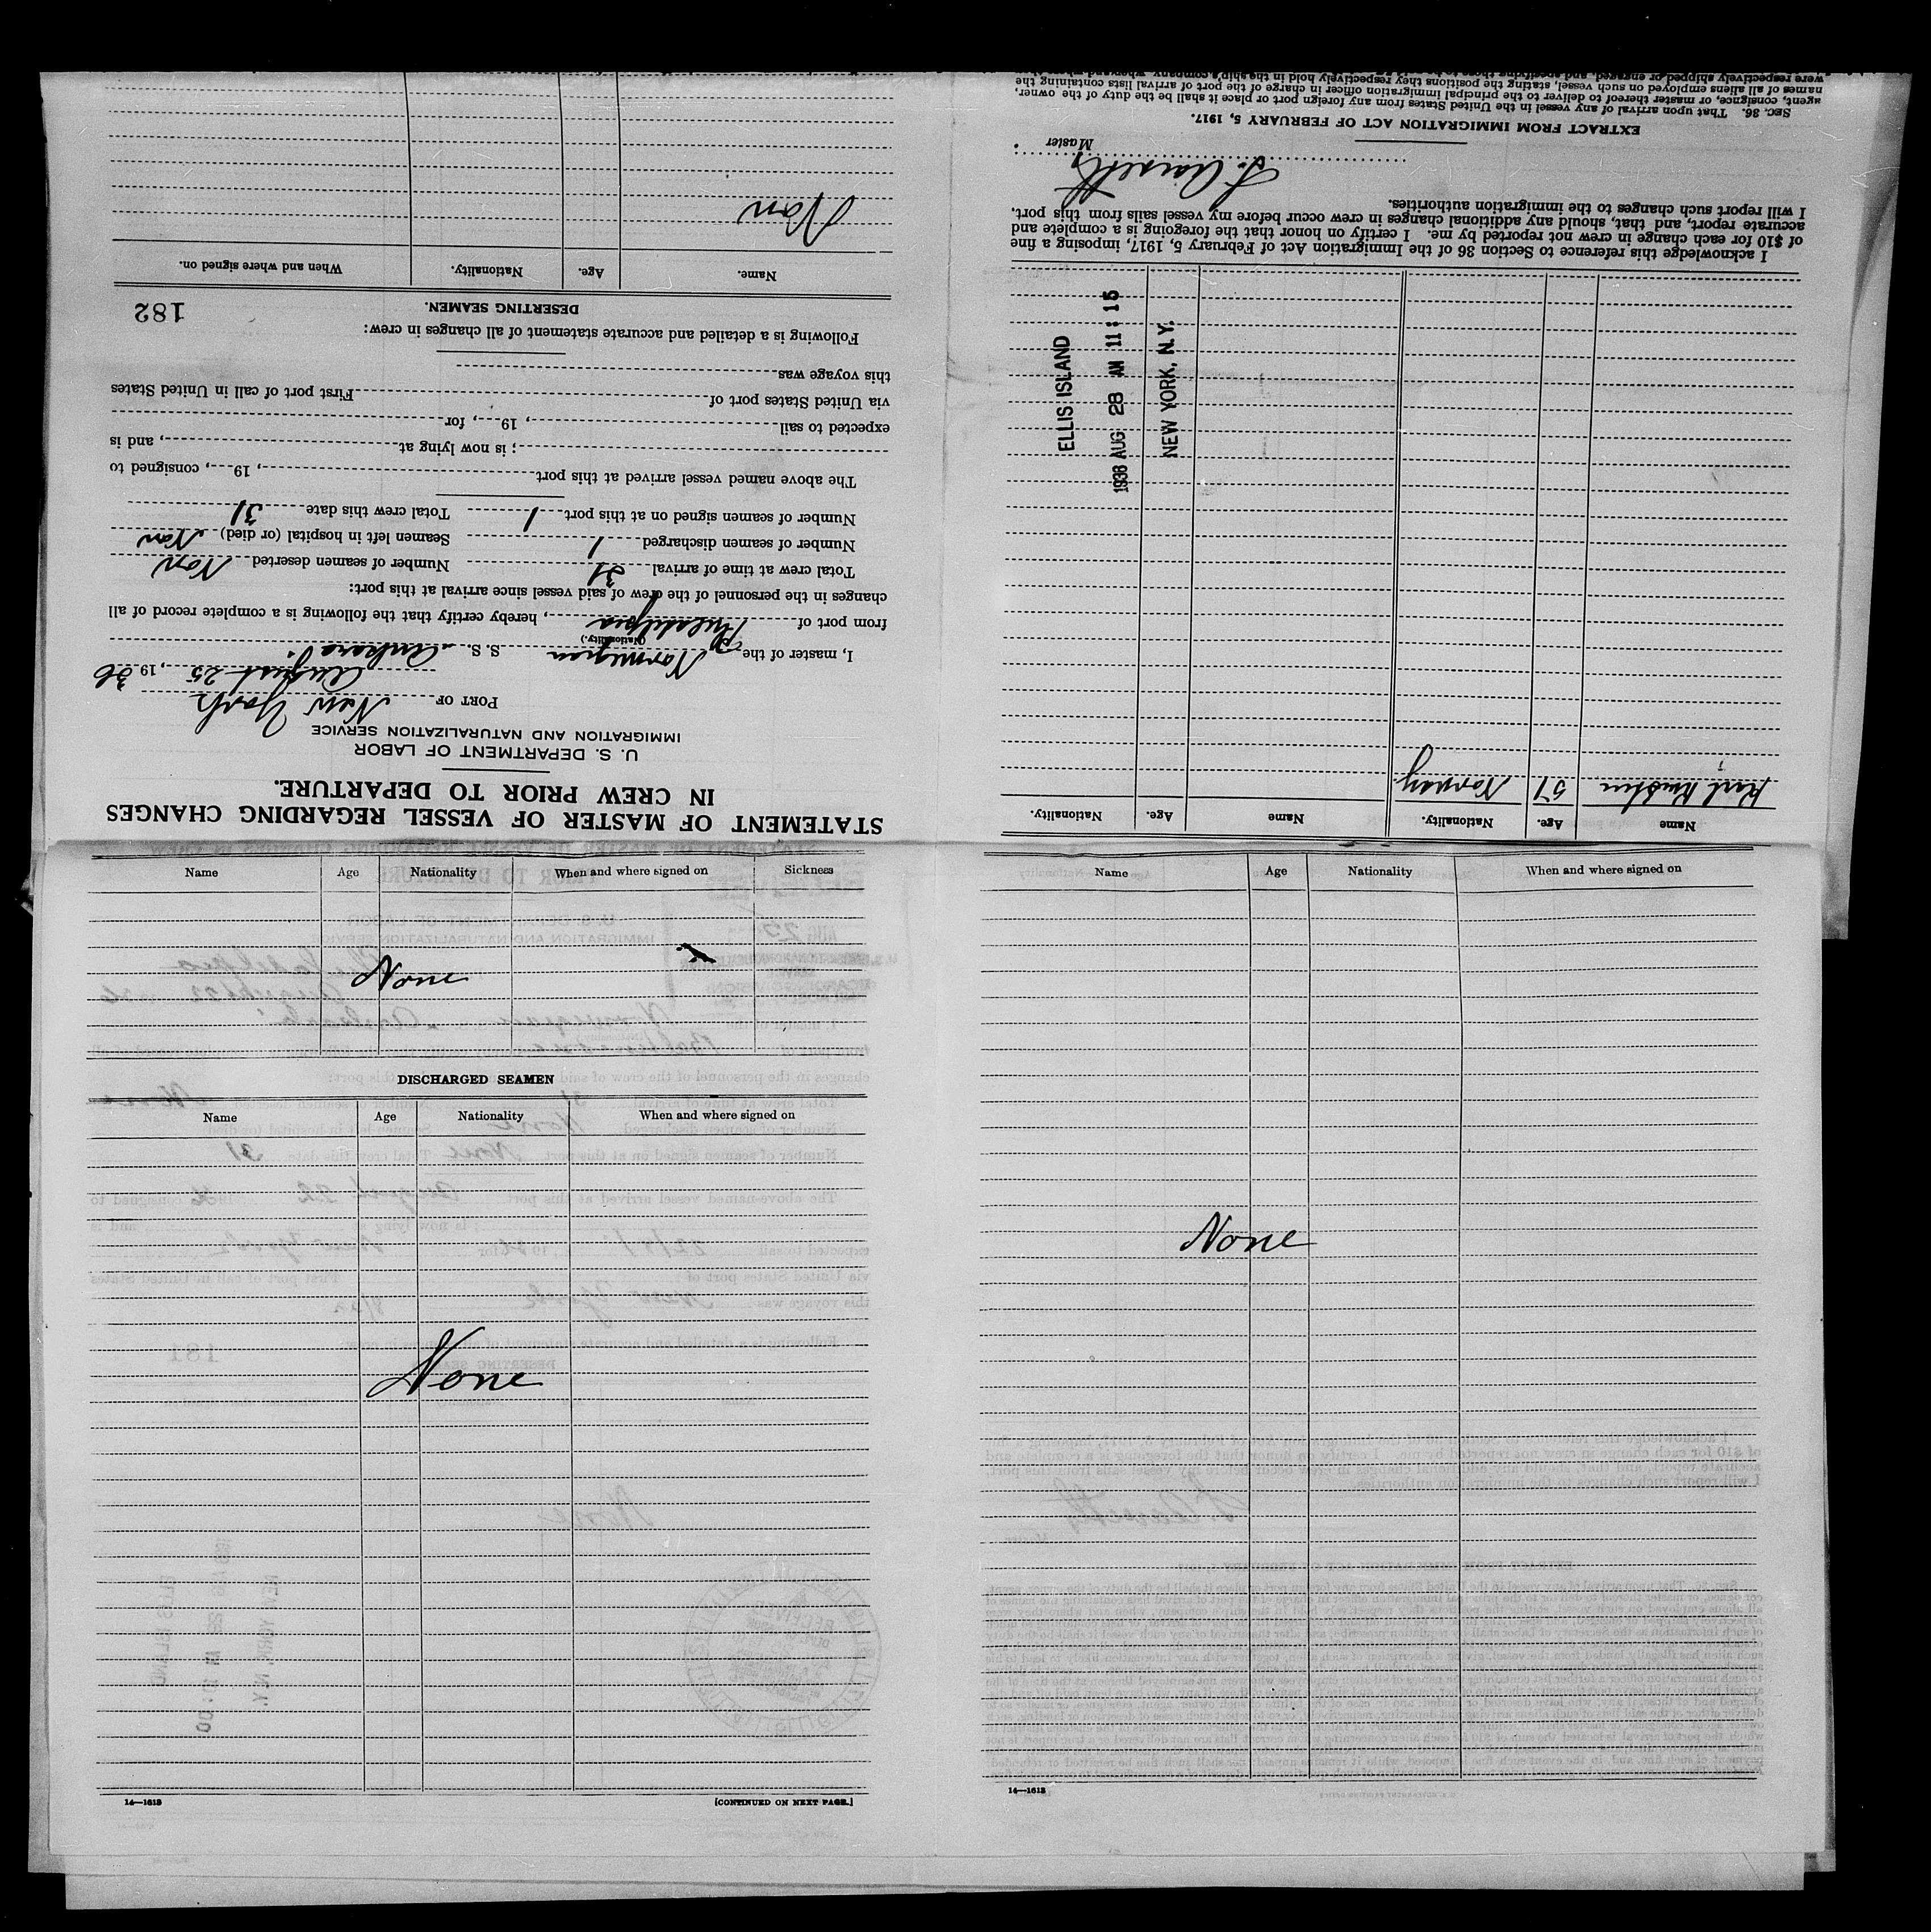 STATEMENT OF MASTER OF VESSEL REGARDING CHANGES
IN CREW PRIOR TO DEPARTURE.
U. S. DEPARTMENT OF LABOR
IMMIGRATION AND NATURALIZATION SERVICE
PORT OF New York
August 25, 1936
I, master of the Norwegian S. S.
(Nationality.)
from port of Philadelphia, hereby certify that the following is a complete record of all
changes in the personnel of the crew of said vessel since arrival at this port:
Total crew at time of arrival 31 Number of seamen deserted Non
Number of seamen discharged 1 Seamen left in hospital (or died) Non
Number of seamen signed on at this port 1 Total crew this date 31
The above named vessel arrived at this port , 19 , consigned to
; is now lying at , and is
expected to sail , 19 , for
via United States port of First port of call in United States
this voyage was
Following is a detailed and accurate statement of all changes in crew:
DESERTING SEAMEN.
182
Name. Age. Nationality. When and where signed on.
Non
Name Age. Nationality. Name Age. Nationality.
Karl 57 Norway
ELLIS ISLAND
1936 AUG 28 AM 11:15
NEW YORK, N.Y.
I acknowledge this reference to Section 36 of the Immigration Act of February 5, 1917, imposing a fine
of $10 for each change in crew not reported by me. I certify on honor that the foregoing is a complete and
accurate report, and that, should any additional changes in crew occur before my vessel sails from this port,
I will report such changes to the immigration authorities.
Master
EXTRACT FROM IMMIGRATION ACT OF FEBRUARY 5, 1917.
SEC. 36. That upon arrival of any vessel in the United States from any foreign port or place it shall be the duty of the owner,
agent, consignee, or master thereof to deliver to the principal immigration officer in charge of the port of arrival lists containing the
names of all aliens employed on such vessel, stating the positions they respectively hold in the ship's company, when and where they
were respectively shipped or engaged, and specifying those to be
Name Age Nationality When and where signed on Sickness
None
DISCHARGED SEAMEN
Name Age Nationality When and where signed on
None
14—1613 [CONTINUED ON NEXT PAGE.]
Name Age Nationality When and where signed on
None
14—1613